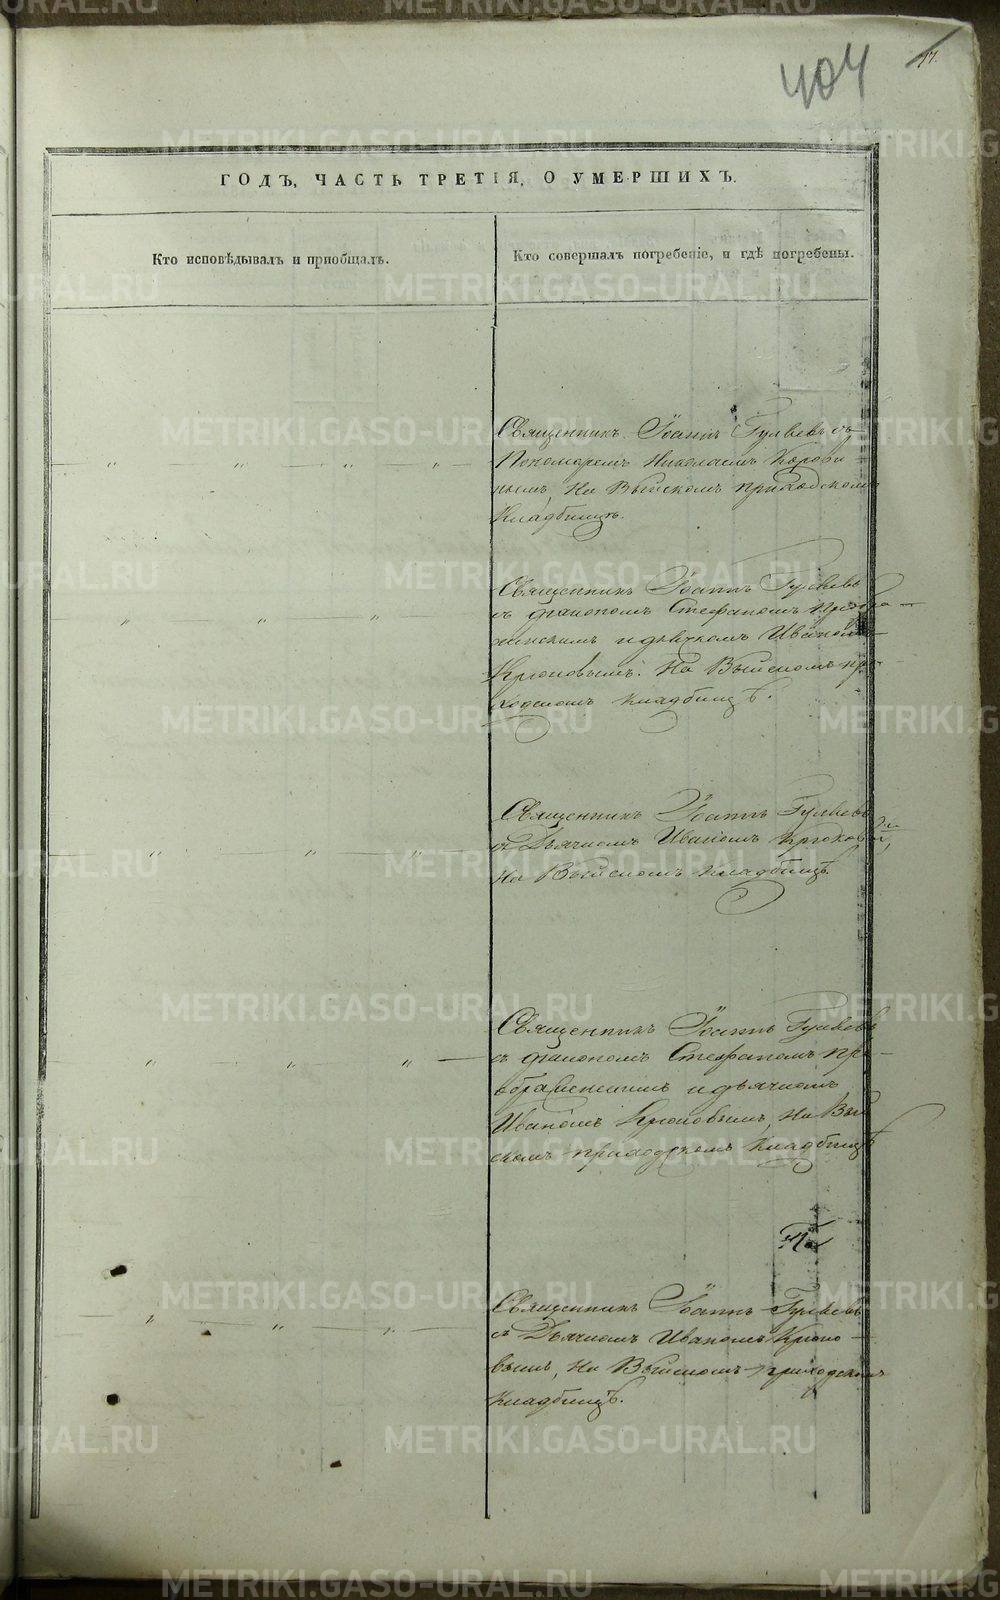 404
17.
ГОДЪ, ЧАСТЬ ТРЕТІЯ, О УМЕРШИХЪ.
Кто исповѣдывалъ и пріобщалъ.
Кто совершалъ погребеніе, и гдѣ погребены.
Священникъ Іоаннъ Гуляевъ съ
Пономаремъ Николаемъ Корови-
нымъ, На Выйскомъ приходскомъ
Кладбищѣ.
Священникъ Іоаннъ Гуляевъ
съ діакономъ Стефаномъ Преобра-
женскимъ и дьячкомъ Иваномъ
Крюковымъ. На Выйскомъ при-
ходскомъ кладбищѣ.
Священникъ Іоаннъ Гуляевъ
съ Дьячкомъ Иваномъ Крюковы
На Выйскомъ кладбищѣ.
Священникъ Іоаннъ Гуляевъ
съ діакономъ Стефаномъ Пре-
ображенскимъ и дьячкомъ
Иваномъ Крюковымъ, На Вый
скомъ приходскомъ Кладбищѣ
Священникъ Іоаннъ Гуляевъ
съ Дьячкомъ Иваномъ Крюко-
вымъ, На Выйскомъ приходскомъ
Кладбищѣ.
METRIKI.GASO-URAL.RU